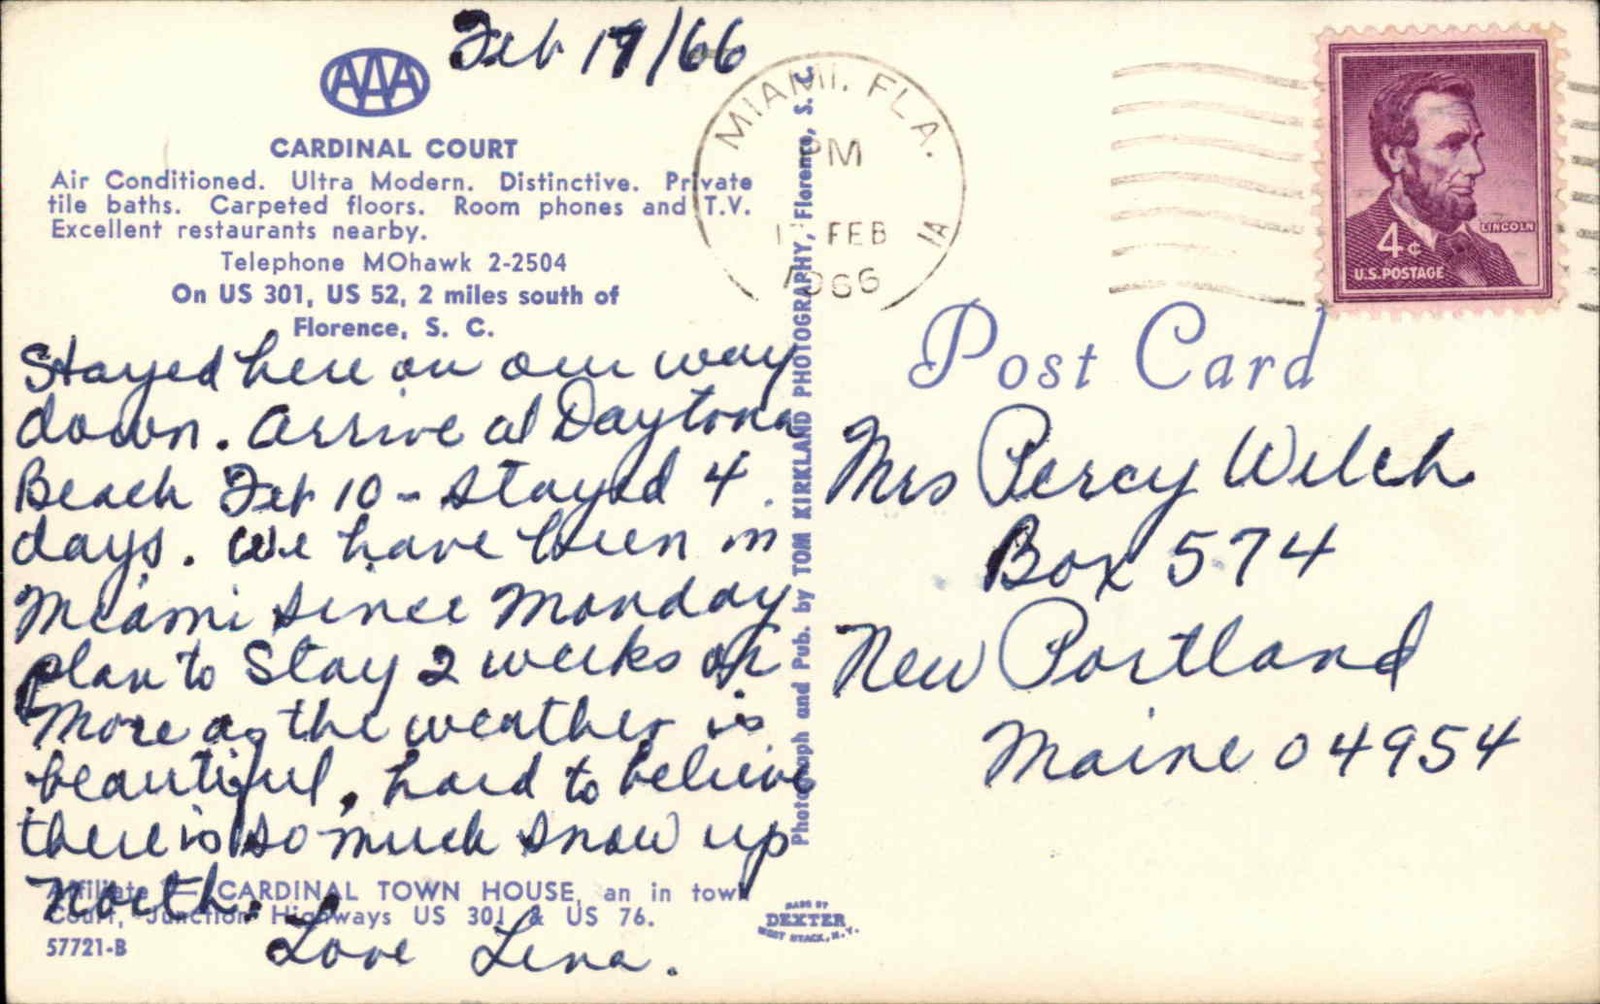 Feb 17/66
AAA
CARDINAL COURT
Air Conditioned. Ultra Modern. Distinctive. Private
tile baths. Carpeted floors. Room phones and T.V.
Excellent restaurants nearby.
Telephone MOhawk 2-2504
On US 301, US 52, 2 miles south of
Florence, S. C.
Stayed here on our way
down. Arrive at Daytona
Beach Feb 10 - stayed 4
days. We have been in
Miami since Monday
plan to Stay 2 weeks or
more as the weather is
beautiful, hard to believe
there is so much snow up
north.
Love Lena.
Affiliate — CARDINAL TOWN HOUSE, an in town
Court, Junction Highways US 301 & US 76.
57721-B
Photograph and Pub. by TOM KIRKLAND PHOTOGRAPHY, Florence, S. C.
MADE BY
DEXTER
WEST NYACK, N.Y.
MIAMI, FLA.
PM
FEB
1966
LINCOLN
4¢
U.S. POSTAGE
Post Card
Mrs Percy Welch
Box 574
New Portland
Maine 04954